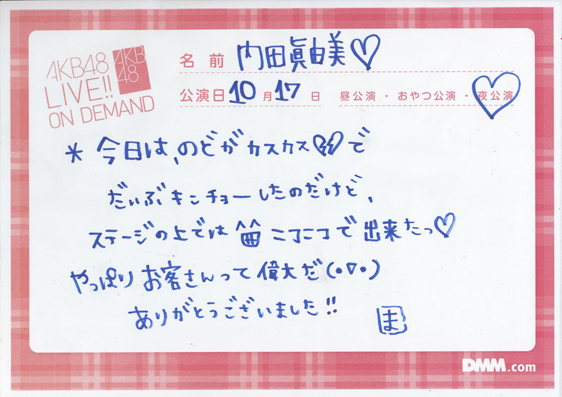 AKB48
LIVE!!
ON DEMAND
AKB
48
名前 内田眞由美♡
公演日 10月17日 昼公演・おやつ公演・夜公演
* 今日は、のどがカスカス💔で
だいぶキンチョーしたのだけど、
ステージの上では笛ニコニコで出来たっ♡
やっぱりお客さんって偉大だ(•∇•)
ありがとうございました!!
ま
DMM.com